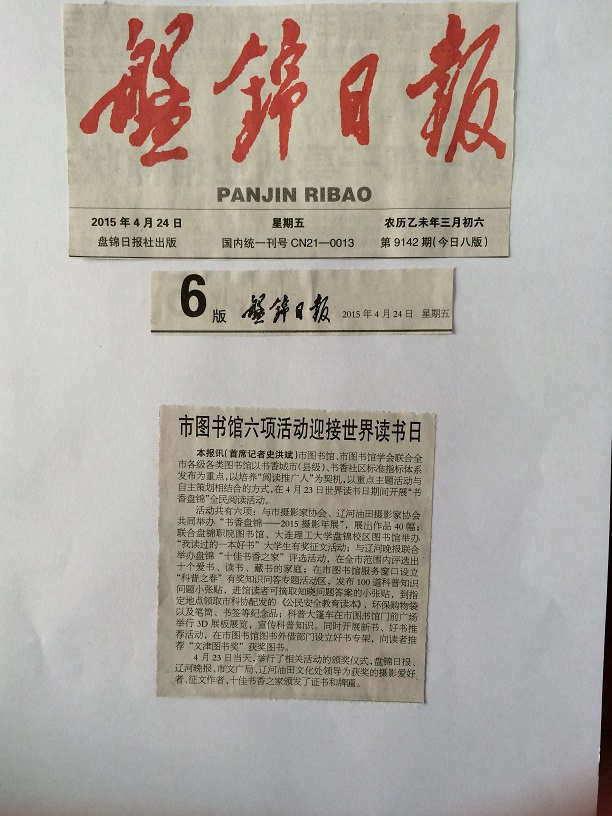 盤錦日報
PANJIN RIBAO
2015年4月24日 星期五 农历乙未年三月初六
盘锦日报社出版 国内统一刊号CN21—0013 第9142期(今日八版)
6版 盤錦日報 2015年4月24日 星期五
市图书馆六项活动迎接世界读书日
本报讯(首席记者史洪斌)市图书馆、市图书馆学会联合全
市各级各类图书馆以书香城市(县级)、书香社区标准指标体系
发布为重点,以培养“阅读推广人”为契机,以重点主题活动与
自主策划相结合的方式,在4月23日世界读书日期间开展“书
香盘锦”全民阅读活动。
活动共有六项:与市摄影家协会、辽河油田摄影家协会
共同举办“书香盘锦——2015摄影年展”,展出作品40幅;
联合盘锦职院图书馆、大连理工大学盘锦校区图书馆举办
“我读过的一本好书”大学生有奖征文活动;与辽河晚报联合
举办盘锦“十佳书香之家”评选活动,在全市范围内评选出
十个爱书、读书、藏书的家庭;在市图书馆服务窗口设立
“科普之春”有奖知识问答专题活动区,发布100道科普知识
问题小张贴,进馆读者可摘取知晓问题答案的小张贴,到指
定地点领取市科协配发的《公民安全教育读本》、环保购物袋
以及笔筒、书签等纪念品;科普大篷车在市图书馆门前广场
举行3D展板展览,宣传科普知识。同时开展新书、好书推
荐活动,在市图书馆图书外借部门设立好书专架,向读者推
荐“文津图书奖”获奖图书。
4月23日当天,举行了相关活动的颁奖仪式,盘锦日报、
辽河晚报、市文广局、辽河油田文化处领导为获奖的摄影爱好
者、征文作者,十佳书香之家颁发了证书和牌匾。